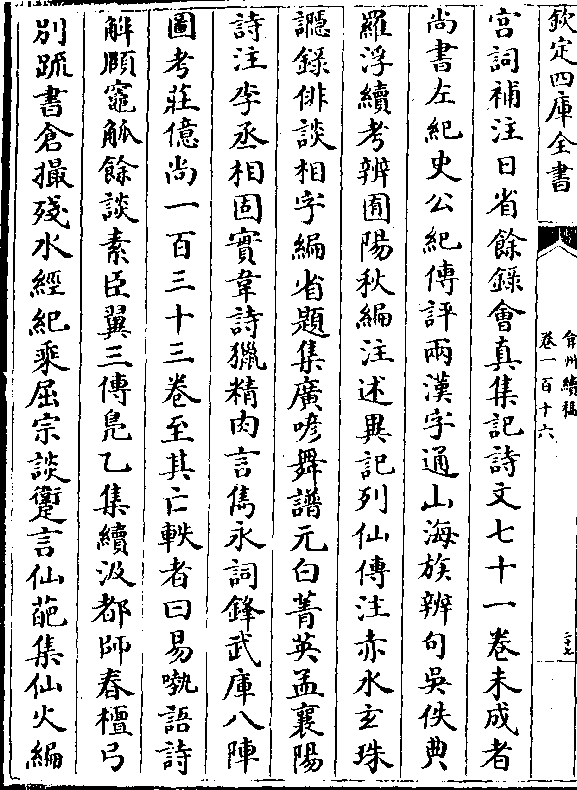 欽定四庫全書
弇州續稿
卷一百十六
宮詞補注日省餘錄會真集記詩文七十一卷未成者
尚書左紀史公紀傳評兩漢字通山海族辨句吳佚典
羅浮續考辨囿陽秋編注述異記列仙傳注赤水玄珠
讔錄俳談相字編省題集廣喭舞譜元白菁英孟襄陽
詩注李丞相固實韋詩獵精肉言雋永詞鋒武庫八陣
圖考莊億尚一百三十三卷至其亡軼者曰易噭語詩
解頤竈觚餘談素臣翼三傳鳧乙集續汲都師春檀弓
別疏書倉撮殘水經紀乘屈宗談躗言仙葩集仙火編